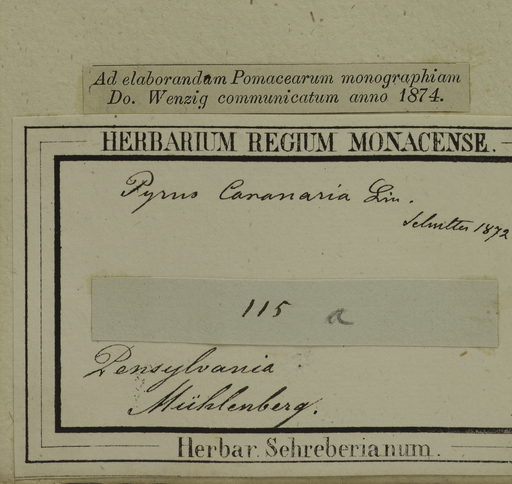 Ad elaborandam Pomacearum monographiam
Do. Wenzig communicatum anno 1874.
HERBARIUM REGIUM MONACENSE.
Pyrus Coronaria Lin.
1872
115 a
Pensylvania
Mühlenberg.
Herbar. Schreberianum.